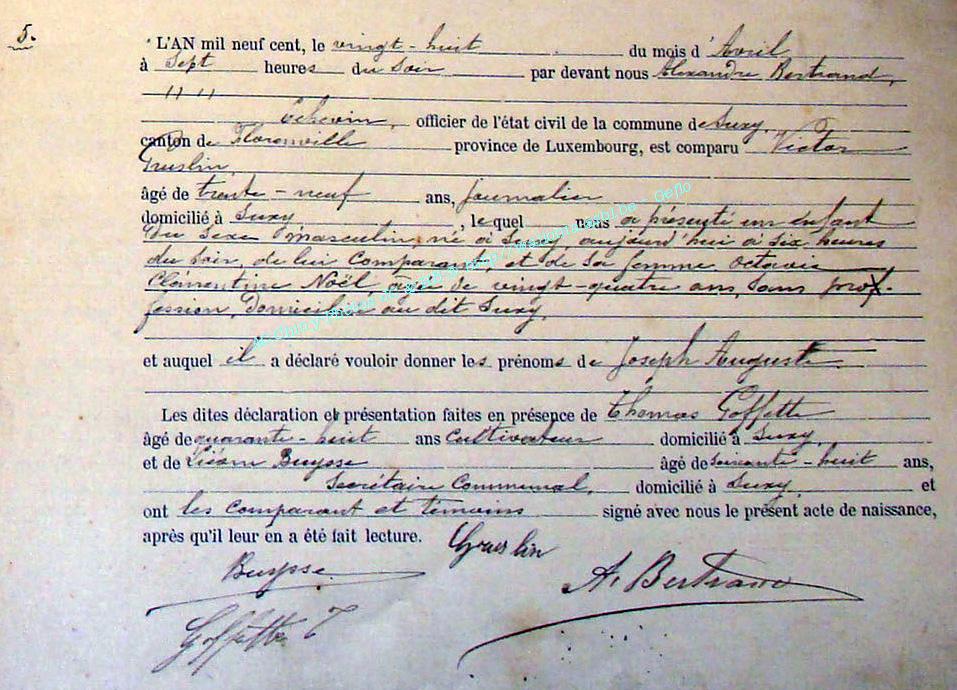 5.
L'AN mil neuf cent, le vingt-huit du mois d'Avril
à Sept heures du Soir par devant nous Alexandre Bertrand,
" "
Echevin, officier de l'état civil de la commune de Suxy,
canton de Florenville province de Luxembourg, est comparu Victor
Gruslin
âgé de trente-neuf ans, Journalier
domicilié à Suxy, lequel nous a présenté un enfant
du sexe masculin, né à Suxy aujourd'hui à six heures
du soir, de lui comparant, et de sa femme Octavie
Clémentine Noël, agée de vingt-quatre ans, sans prof-
fession, domiciliée au dit Suxy,
et auquel il a déclaré vouloir donner les prénoms de Joseph Auguste
Les dites déclaration et présentation faites en présence de Thomas Goffette
âgé de quarante-huit ans Cultivateur domicilié à Suxy,
et de Léon Buysse âgé de soixante-huit ans,
Secrétaire Communal, domicilié à Suxy, et
ont les comparant et témoins signé avec nous le présent acte de naissance,
après qu'il leur en a été fait lecture. Gruslin
Buysse
A. Bertrand
Goffette T